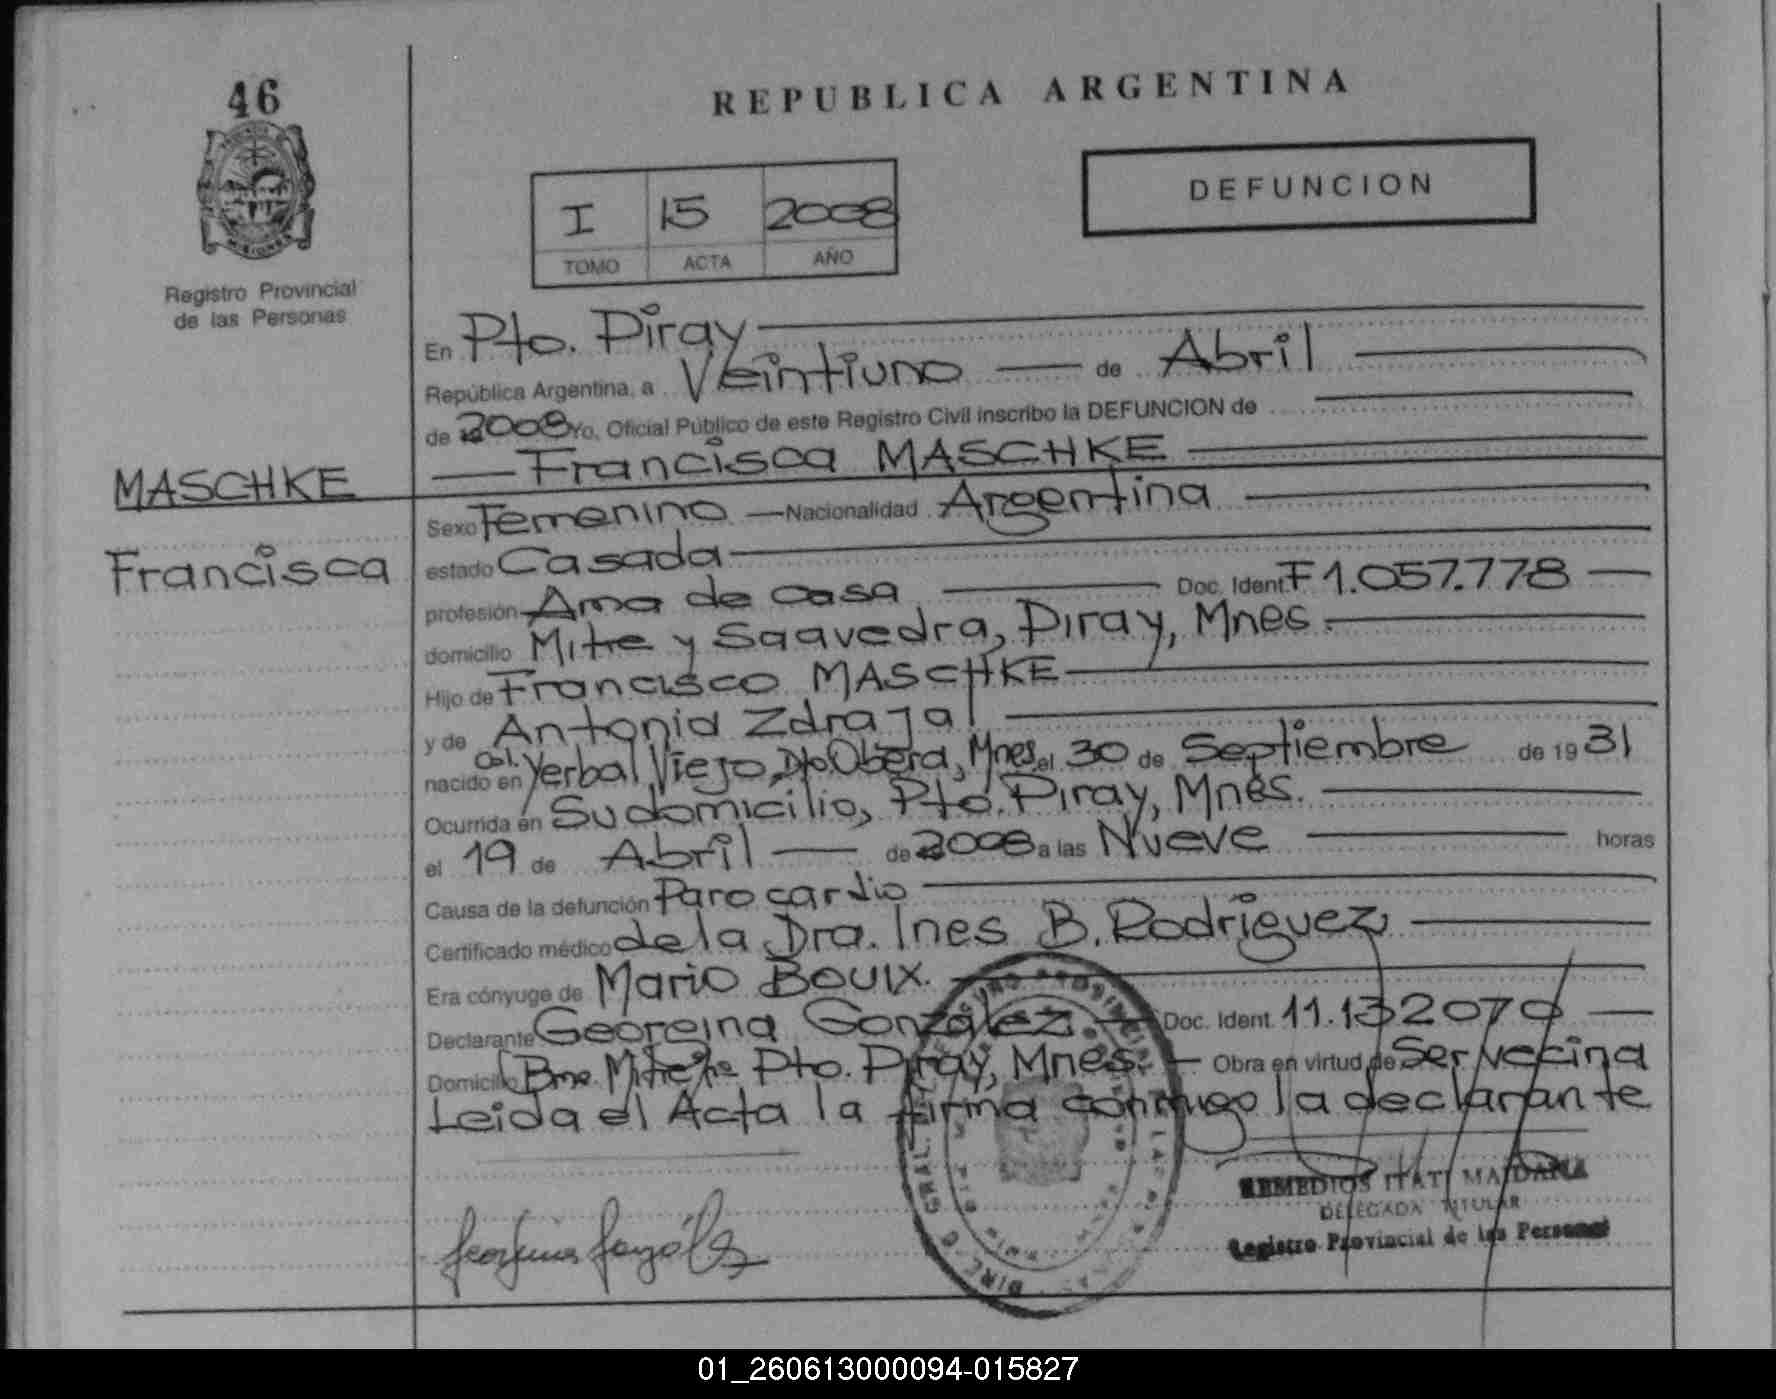 46
REPUBLICA ARGENTINA
DEFUNCION
I 15 2008
TOMO ACTA AÑO
Registro Provincial
de las Personas
En Pto. Piray
República Argentina, a Veintiuno de Abril
de 2008 Yo, Oficial Público de este Registro Civil inscribo la DEFUNCION de
Francisca MASCHKE
MASCHKE
Francisca
Sexo Femenino Nacionalidad Argentina
estado Casada
profesión Ama de casa Doc. Ident. F 1.057.778
domicilio Mitre y Saavedra, Piray, Mnes.
Hijo de Francisco MASCHKE
y de Antonia Zdraja
nacido en Col. Yerbal Viejo, Dto. Oberá, Mnes. el 30 de Septiembre de 1931
Ocurrida en Su domicilio, Pto. Piray, Mnes.
el 19 de Abril de 2008 a las Nueve horas
Causa de la defunción Paro cardio
Certificado médico de la Dra. Ines B. Rodríguez
Era cónyuge de Mario Bouix.
Declarante Georgina González Doc. Ident. 11.132070
Domicilio Bme. Mitre Pto. Piray, Mnes. Obra en virtud de Ser vecina
Leida el Acta la firma conmigo la declarante
REMEDIOS ITATI MAIDANA
DELEGADA TITULAR
Registro Provincial de las Personas
01_260613000094-015827